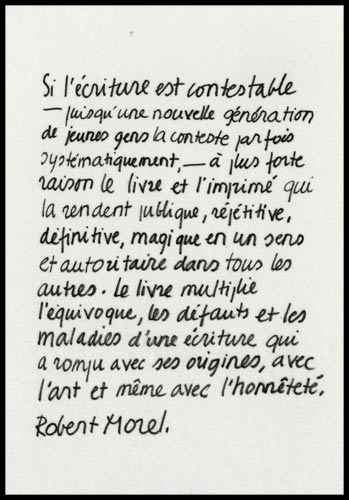 Si l'écriture est contestable
— puisqu'une nouvelle génération
de jeunes gens la conteste parfois
systématiquement, — à plus forte
raison le livre et l'imprimé qui
la rendent publique, répétitive,
définitive, magique en un sens
et autoritaire dans tous les
autres. Le livre multiplie
l'équivoque, les défauts et les
maladies d'une écriture qui
a rompu avec ses origines, avec
l'art et même avec l'honnêteté.
Robert Morel.